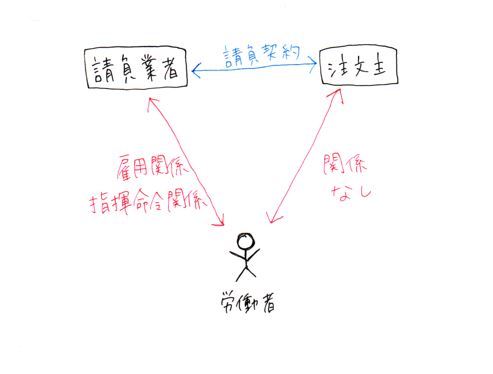 請負業者
請負契約
注文主
雇用関係
指揮命令関係
関係
なし
労働者